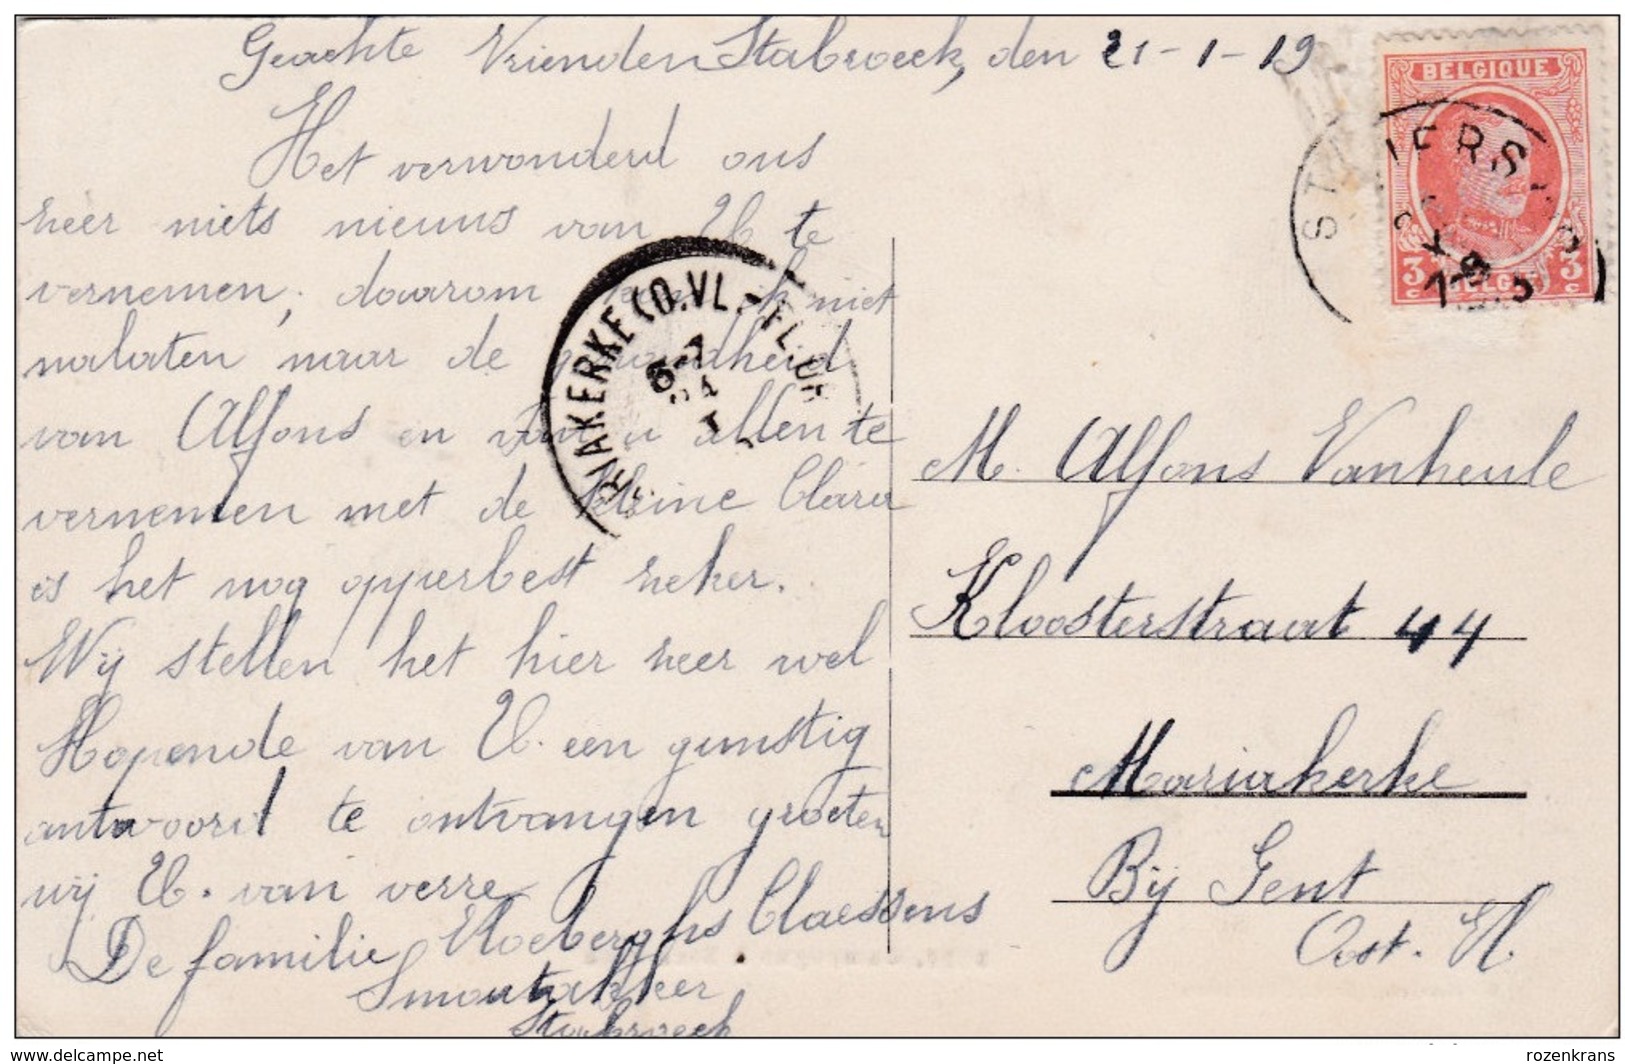 Geachte Vrienden Stabroeck, den 21-1-19
Het verwonderd ons
zeer niets nieuws van U te
vernemen, daarom ik niet
nalaten naar de gezondheid
van Alfons en van u allen te
vernemen met de kleine Clara
is het nog opperbest zeker.
Wij stellen het hier zeer wel
Hopende van U. een gunstig
antwoord te ontvangen groeten
wij U. van verre
De familie Claessens
Stabroeck
BELGIQUE
3 3
c BELGIE c
MARIAKERKE (O.VL.-FL.OR
6-7
M. Alfons Vanheule
Kloosterstraat 44
Mariakerke
Bij Gent
Oost. Vl
https://www.delcampe.net
rozenkrans